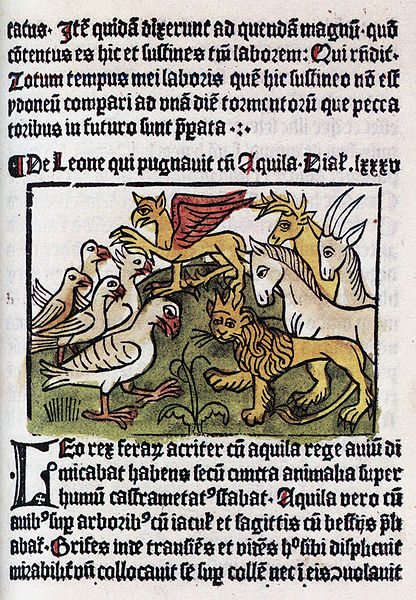 tatus. Itē quidā dixerunt ad quendā magnū. quō
cōtentus es hic et sustines tm̄ laborem: Qui rn̄dit.
Totum tempus mei laboris quē hic sustineo nō est
ydoneū compari ad vnā diē tormentorū que pecca
toribus in futuro sunt p̄pata ·:·
¶ De Leone qui pugnavit cū Aquila. Dial. lxxxv
LEo rex feraꝝ acriter cū aquila rege auiū di
micabat habens secū cuncta animalia super
humū castrametatꝰ stabat. Aquila vero cū
auibꝰ sup̄ arboribꝰ cū iaculꝭ et sagittis cū bestijs p̄li
abat. Grifes inde transiēs et vidēs hᵒ sibi displicuit
mirabilit̄ vn̄ collocauit se sup̄ collē nec